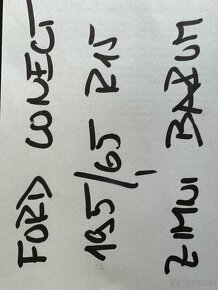 FORD CONECT
195/65 R15
ZIMNI BAZUM